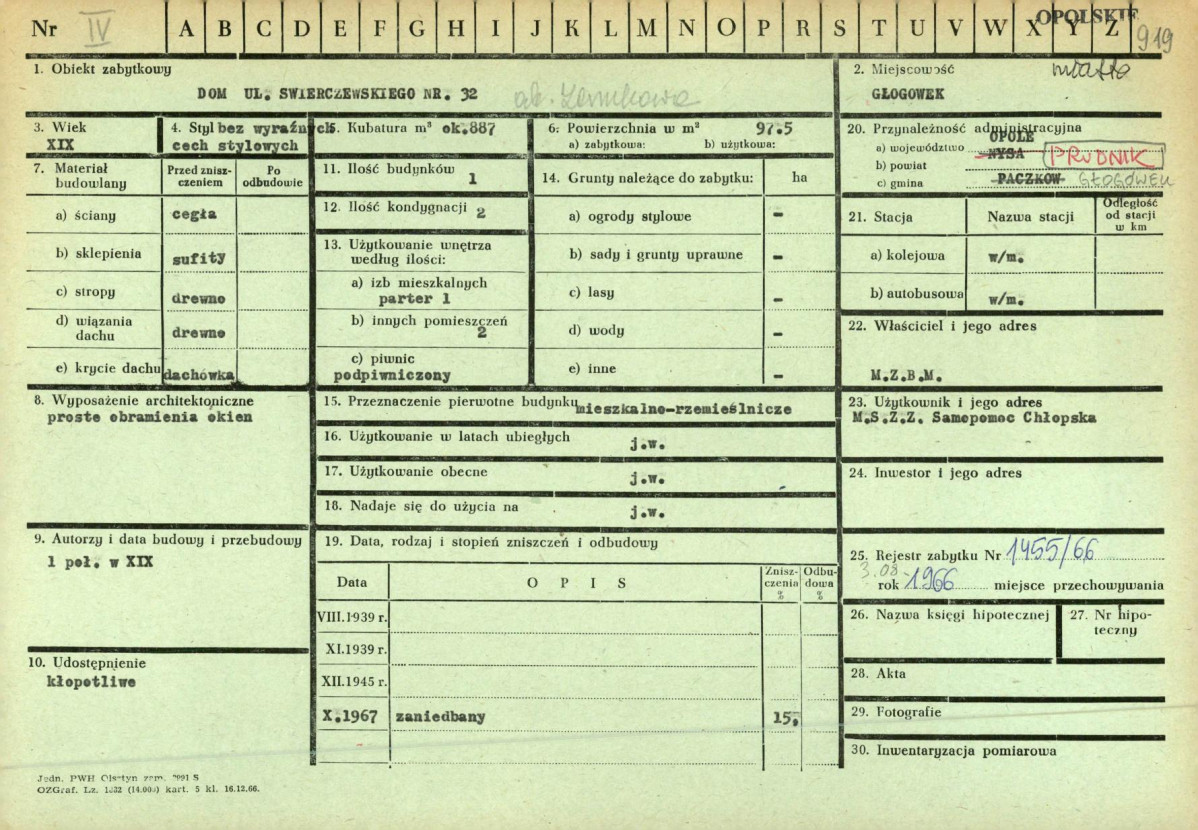 Nr IV A B C D E F G H I J K L M N O P R S T U V W X Y Z
OPOLSKIE
919
1. Obiekt zabytkowy
DOM UL. SWIERCZEWSKIEGO NR. 32
ob. Zamkowa
2. Miejscowość
miasto
GŁOGOWEK
3. Wiek
XIX
4. Styl bez wyraźnych
cech stylowych
5. Kubatura m³ ok.887
6. Powierzchnia w m² 97.5
a) zabytkowa: b) użytkowa:
7. Materiał
budowlany
Przed znisz-
czeniem
Po
odbudowie
a) ściany cegła
b) sklepienia sufity
c) stropy drewno
d) wiązania
dachu drewno
e) krycie dachu dachówka
8. Wyposażenie architektoniczne
proste obramienia okien
9. Autorzy i data budowy i przebudowy
1 poł. w XIX
10. Udostępnienie
kłopotliwe
11. Ilość budynków 1
12. Ilość kondygnacji 2
13. Użytkowanie wnętrza
według ilości:
a) izb mieszkalnych
parter 1
b) innych pomieszczeń
2
c) piwnic
podpiwniczony
14. Grunty należące do zabytku: ha
a) ogrody stylowe -
b) sady i grunty uprawne -
c) lasy -
d) wody -
e) inne -
15. Przeznaczenie pierwotne budynku mieszkalno-rzemieślnicze
16. Użytkowanie w latach ubiegłych j.w.
17. Użytkowanie obecne j.w.
18. Nadaje się do użycia na j.w.
19. Data, rodzaj i stopień zniszczeń i odbudowy
Data OPIS
Znisz-
czenia
%
Odbu-
dowa
%
VIII.1939 r.
XI.1939 r.
XII.1945 r.
X.1967 zaniedbany 15.
20. Przynależność administracyjna
a) województwo OPOLE
b) powiat NYSA PRUDNIK
c) gmina PACZKOW GŁOGÓWEK
21. Stacja Nazwa stacji
Odległość
od stacji
w km
a) kolejowa w/m.
b) autobusowa w/m.
22. Właściciel i jego adres
M.Z.B.M.
23. Użytkownik i jego adres
M.S.Z.Z. Samopomoc Chłopska
24. Inwestor i jego adres
25. Rejestr zabytku Nr 1455/66
3.08.
rok 1966 miejsce przechowywania
26. Nazwa księgi hipotecznej
27. Nr hipo-
teczny
28. Akta
29. Fotografie
30. Inwentaryzacja pomiarowa
Jedn. PWH Olsztyn zam. 2991 S
OZGraf. Lz. 1332 (14.000) kart. 5 kl. 16.12.66.